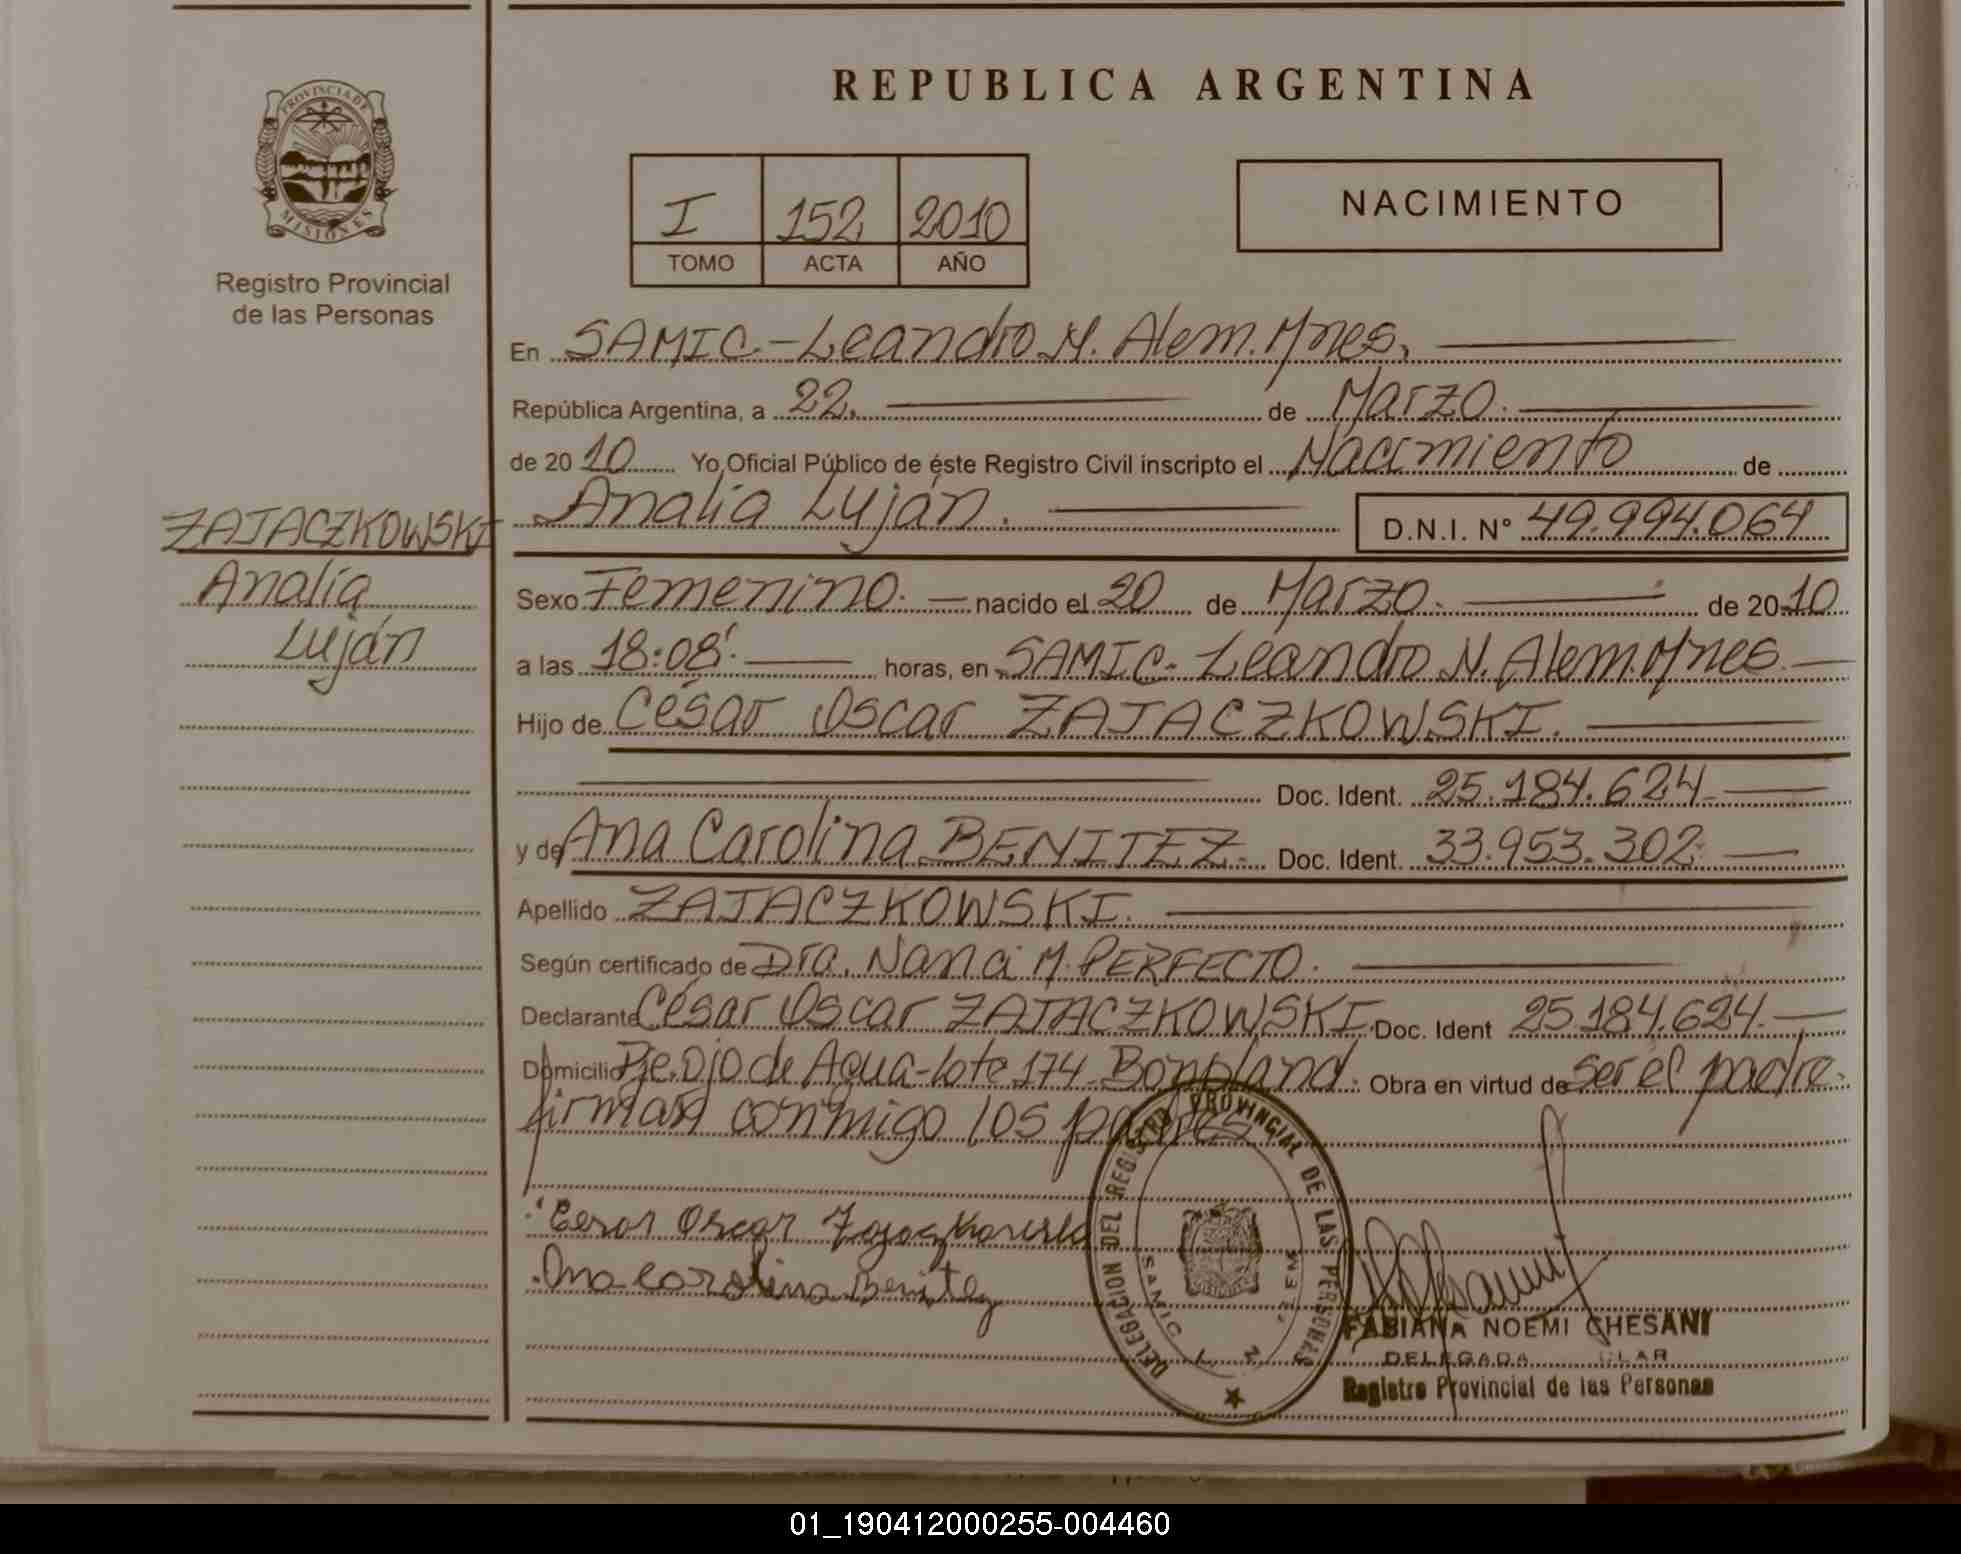 REPUBLICA ARGENTINA
PROVINCIA DE MISIONES
Registro Provincial
de las Personas
I 152 2010
TOMO ACTA AÑO
NACIMIENTO
En SAMIC.-Leandro N. Alem. Mnes.
República Argentina, a 22. de Marzo.
de 2010 Yo, Oficial Público de éste Registro Civil inscripto el Nacimiento de
Analía Luján. D.N.I. Nº 49.994.064
ZAJACZKOWSKI
Analía
Luján
Sexo Femenino. nacido el 20 de Marzo. de 2010
a las 18:08'. horas, en SAMIC- Leandro N. Alem. Mnes.
Hijo de César Oscar ZAJACZKOWSKI.
Doc. Ident. 25.184.624
y de Ana Carolina BENITEZ. Doc. Ident. 33.953.302
Apellido ZAJACZKOWSKI.
Según certificado de Dra. Nanci M. PERFECTO.
Declarante César Oscar ZAJACZKOWSKI. Doc. Ident 25.184.624.
Domicilio Pje. Ojo de Agua-lote 174 Bonpland. Obra en virtud de ser el padre.
firman conmigo los padres
Cesar Oscar Zajaczkowski
Ana Carolina Benitez
DELEGACION DEL REGISTRO PROVINCIAL DE LAS PERSONAS
SAMIC
FABIANA NOEMI CHESANI
DELEGADA
Registro Provincial de las Personas
01_190412000255-004460